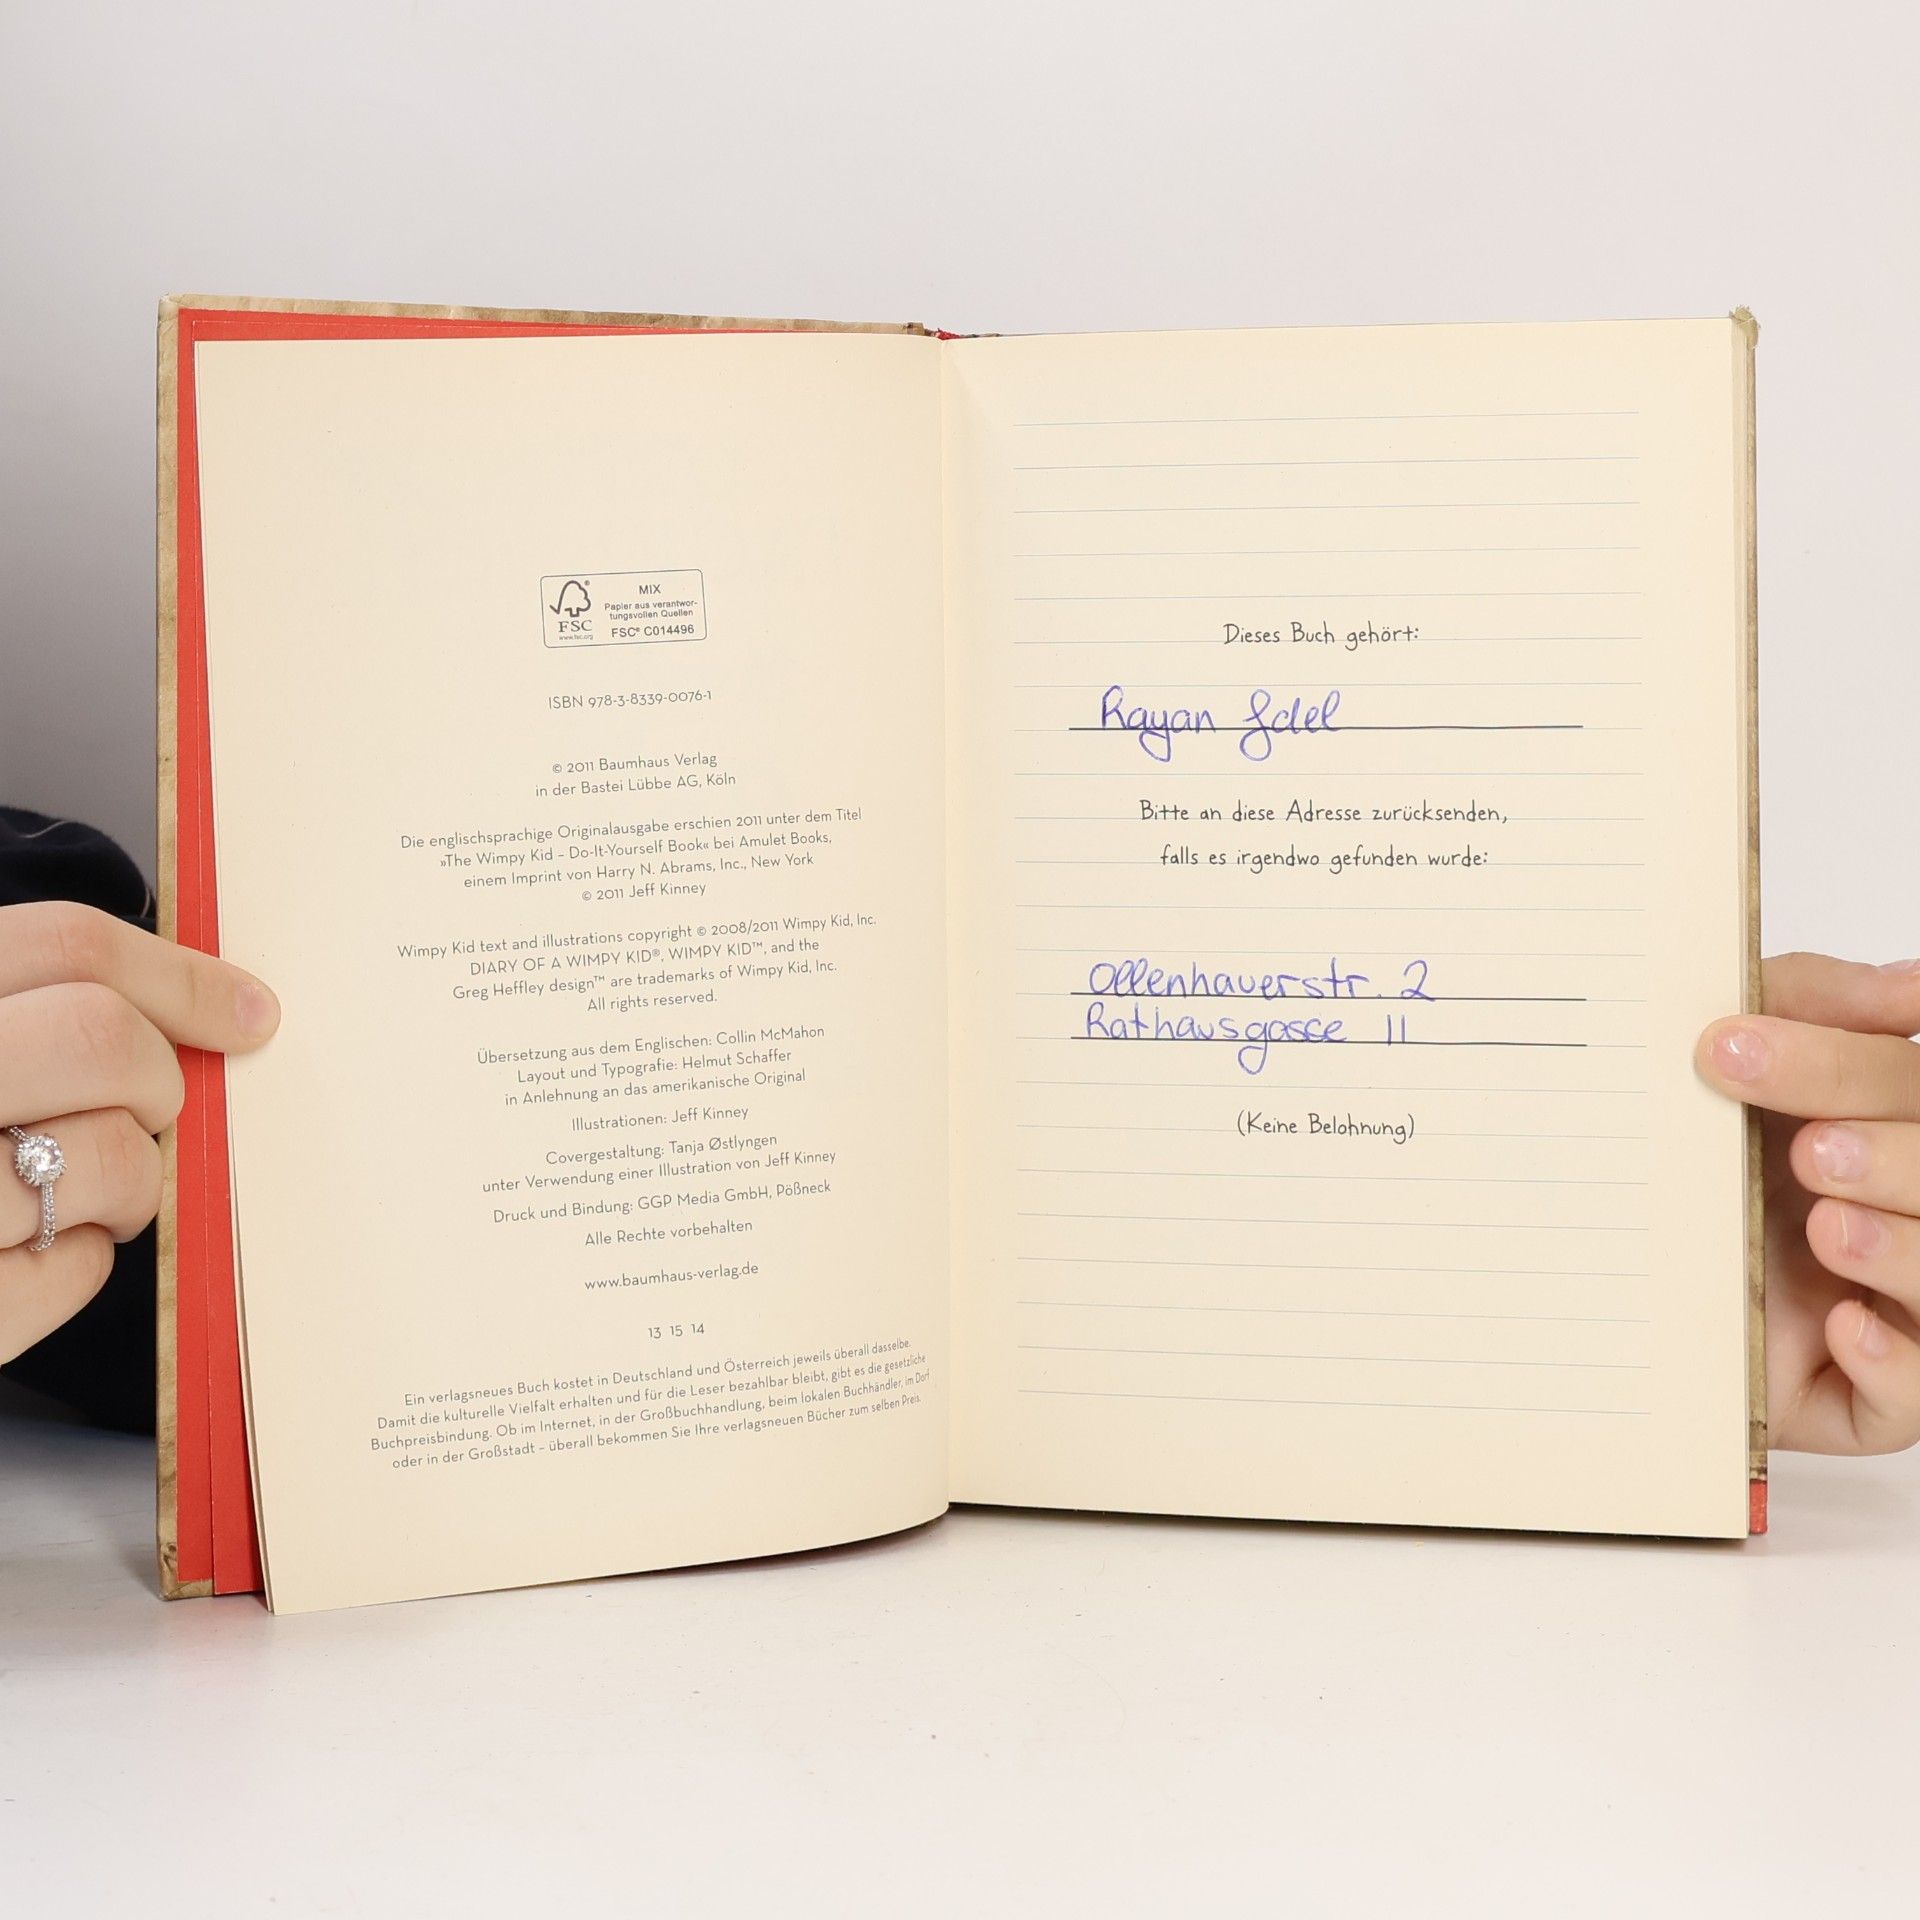 FSC®
www.fsc.org
MIX
Papier aus verantwor-
tungsvollen Quellen
FSC® C014496
ISBN 978-3-8339-0076-1
© 2011 Baumhaus Verlag
in der Bastei Lübbe AG, Köln
Die englischsprachige Originalausgabe erschien 2011 unter dem Titel
»The Wimpy Kid – Do-It-Yourself Book« bei Amulet Books,
einem Imprint von Harry N. Abrams, Inc., New York
© 2011 Jeff Kinney
Wimpy Kid text and illustrations copyright © 2008/2011 Wimpy Kid, Inc.
DIARY OF A WIMPY KID®, WIMPY KID™, and the
Greg Heffley design™ are trademarks of Wimpy Kid, Inc.
All rights reserved.
Übersetzung aus dem Englischen: Collin McMahon
Layout und Typografie: Helmut Schaffer
in Anlehnung an das amerikanische Original
Illustrationen: Jeff Kinney
Covergestaltung: Tanja Østlyngen
unter Verwendung einer Illustration von Jeff Kinney
Druck und Bindung: GGP Media GmbH, Pößneck
Alle Rechte vorbehalten
www.baumhaus-verlag.de
13 15 14
Ein verlagsneues Buch kostet in Deutschland und Österreich jeweils überall dasselbe.
Damit die kulturelle Vielfalt erhalten und für die Leser bezahlbar bleibt, gibt es die gesetzliche
Buchpreisbindung. Ob im Internet, in der Großbuchhandlung, beim lokalen Buchhändler, im Dorf
oder in der Großstadt – überall bekommen Sie Ihre verlagsneuen Bücher zum selben Preis.
Dieses Buch gehört:
Rayan
Bitte an diese Adresse zurücksenden,
falls es irgendwo gefunden wurde:
Ollenhauerstr. 2
Rathausgasse 11
(Keine Belohnung)